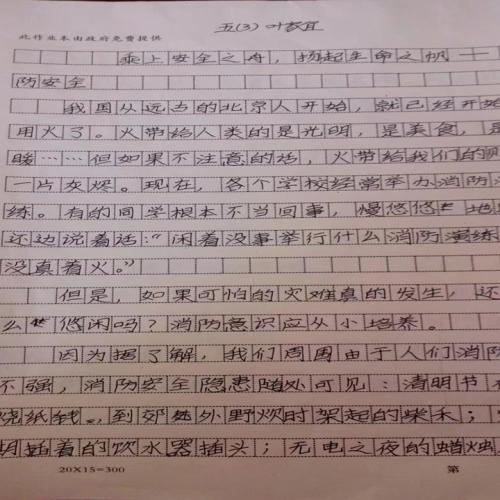 五(3) 叶家宜
此作业本由政府免费提供
乘上安全之舟，扬起生命之帆——
防安全
我国从远古的北京人开始，就已经开始
用火了。火带给人类的是光明，是美食，是
暖……但如果不注意的话，火带给我们的则
一片灰烬。现在，各个学校经常举办消防演
练。有的同学根本不当回事，慢悠悠地
还边说着话：“闲着没事举行什么消防演练
没真着火。”
但是，如果可怕的灾难真的发生，还
么悠闲吗？消防意识应从小培养。
因为据了解，我们周围由于人们消防
不强，消防安全隐患随处可见：清明节
烧纸钱，到郊外野炊时架起的柴禾；
胡插着的饮水器插头；无电之夜的蜡烛
20X15=300
第